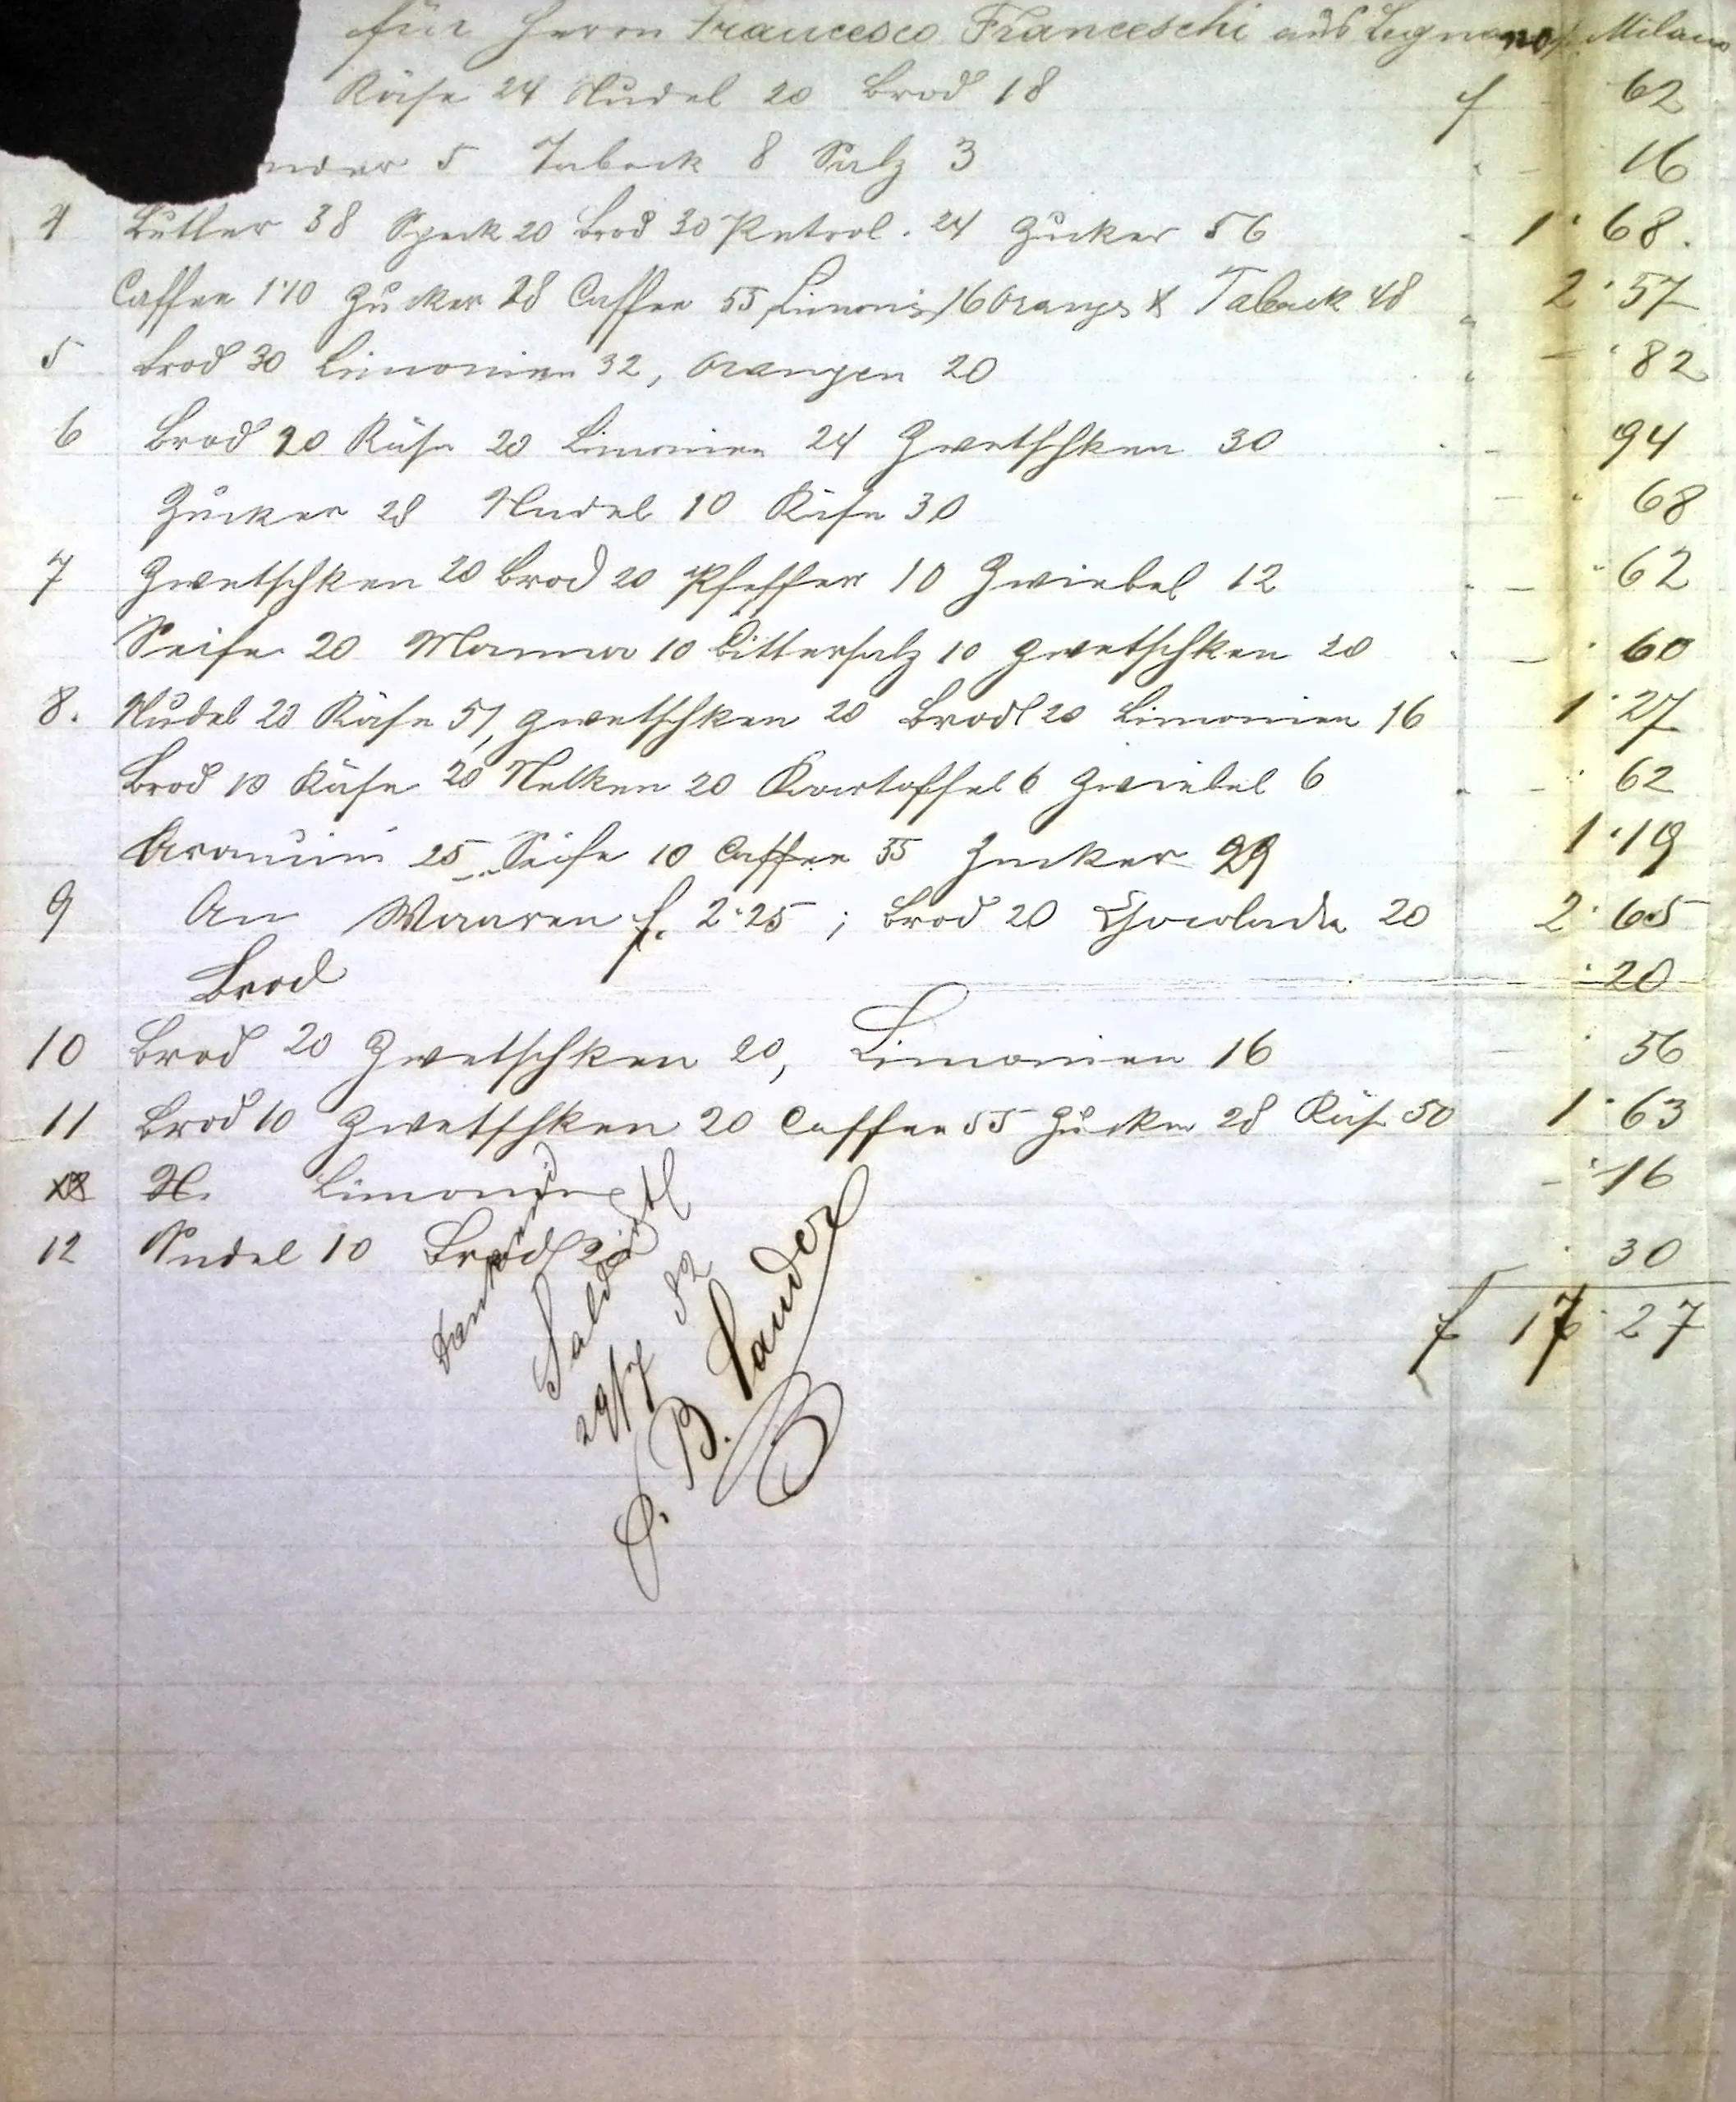 für Herrn Francesco Franceschi aus Legnano Milano
Käse 24 Nudel 20 Brod 18 f - 62
5 Taback 8 Salz 3 - 16
4 Butter 38 Speck 20 Brod 30 Petrol. 24 Zucker 56 1·68.
Caffee 1·10 Zucker 28 Caffee 55 Limonie 16 Orange Taback 48 2·57
5 Brod 30 Limonien 32, Orangen 20 - ·82
6 Brod 20 Käse 20 Limonien 24 Zwetschken 30 - ·94
Zucker 28 Nudel 10 Käse 30 - · 68
7 Zwetschken 20 Brod 20 Pfeffer 10 Zwiebel 12 - ·62
Seife 20 Manna 10 Bittersalz 10 Zwetschken 20 - · 60
8. Nudel 20 Käse 51, Zwetschken 20 Brod 20 Limonien 16 1·27
Brod 10 Käse 20 Nelken 20 Kartoffel 6 Zwiebel 6 - · 62
25 Seife 10 Caffee 55 Zucker 29 1·19
9 An Waaren f. 2·25 ; Brod 20 Chocolade 20 2·65
Brod ·20
10 Brod 20 Zwetschken 20, Limonien 16 - · 56
11 Brod 10 Zwetschken 20 Caffee 55 Zucker 28 Käse 50 1·63
N. Limonien - ·16
12 Nudel 10 Brod 20 · 30
f 17·27
dankend
Saldirt
29/7 82
B. Sander